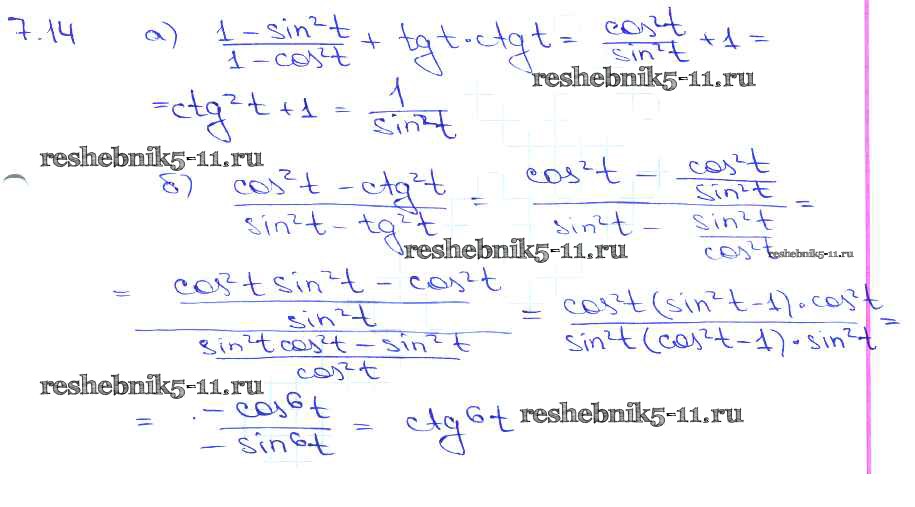 7.14 а) (1 - sin²t)/(1 - cos²t) + tgt·ctgt = cos²t/sin²t + 1 =
reshebnik5-11.ru
= ctg²t + 1 = 1/sin²t
reshebnik5-11.ru
б) (cos²t - ctg²t)/(sin²t - tg²t) = (cos²t - cos²t/sin²t)/(sin²t - sin²t/cos²t) =
reshebnik5-11.ru
reshebnik5-11.ru
= ((cos²t sin²t - cos²t)/sin²t)/((sin²t cos²t - sin²t)/cos²t) = (cos²t(sin²t-1)·cos²t)/(sin²t(cos²t-1)·sin²t) =
reshebnik5-11.ru
= (-cos⁶t)/(-sin⁶t) = ctg⁶t
reshebnik5-11.ru